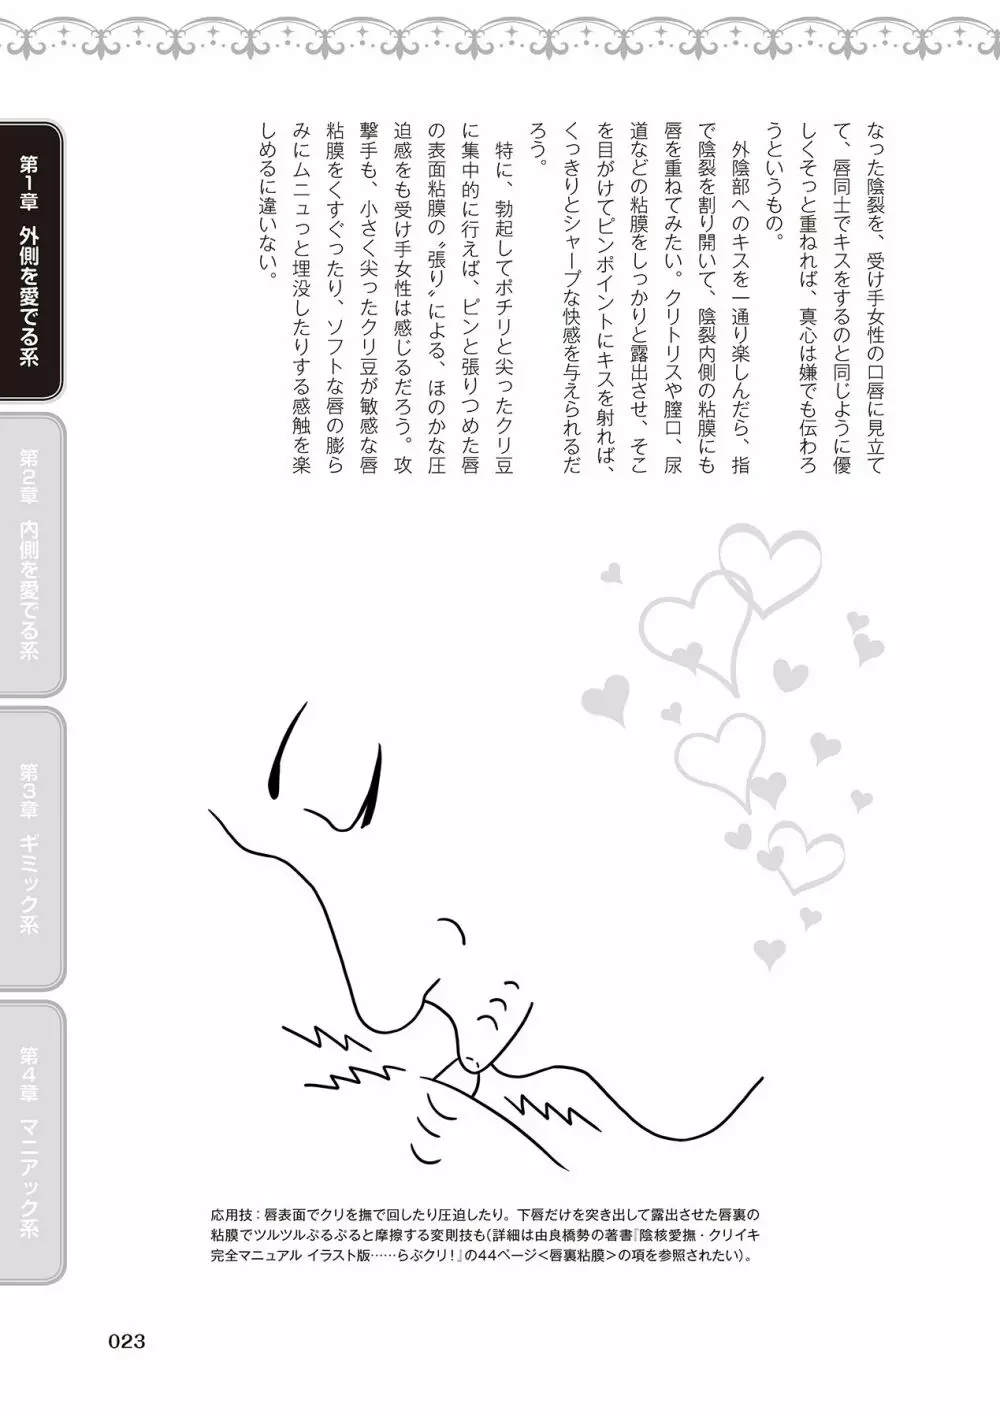 なった陰裂を、受け手女性の口唇に見立て
て、唇同士でキスをするのと同じように優
しくそっと重ねれば、真心は嫌でも伝わろ
うというもの。
外陰部へのキスを一通り楽しんだら、指
で陰裂を割り開いて、陰裂内側の粘膜にも
唇を重ねてみたい。クリトリスや膣口、尿
道などの粘膜をしっかりと露出させ、そこ
を目がけてピンポイントにキスを射れば、
くっきりとシャープな快感を与えられるだ
ろう。
特に、勃起してポチリと尖ったクリ豆
に集中的に行えば、ピンと張りつめた唇
の表面粘膜の〝張り〟による、ほのかな圧
迫感をも受け手女性は感じるだろう。攻
撃手も、小さく尖ったクリ豆が敏感な唇
粘膜をくすぐったり、ソフトな唇の膨ら
みにムニュっと埋没したりする感触を楽
しめるに違いない。
第1章 外側を愛でる系
第2章 内側を愛でる系
第3章 ギミック系
第4章 マニアック系
応用技：唇表面でクリを撫で回したり圧迫したり。下唇だけを突き出して露出させた唇裏の
粘膜でツルツルぷるぷると摩擦する変則技も（詳細は由良橋勢の著書『陰核愛撫・クリイキ
完全マニュアル イラスト版……らぶクリ！』の44ページ＜唇裏粘膜＞の項を参照されたい）。
023